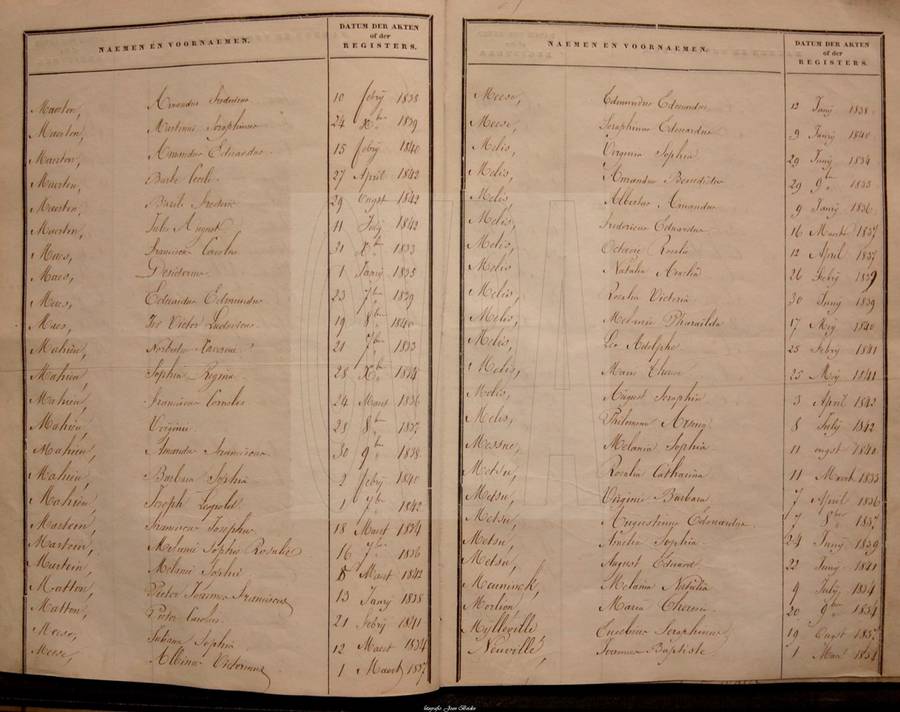 NAEMEN EN VOORNAEMEN. DATUM DER AKTEN
of der
REGISTERS.
Maerten, Amandus Fredericus 10 febrij 1838
Maerten, Martinus Seraphinus 24 Xber 1839
Maerten, Amandus Eduardus 15 febrij 1840
Maerten, Barbe Cecile 27 April 1842
Maerten, Basile Frederic 29 Ougst 1842
Maerten, Jules August 11 July 1843
Maes, Francisca Carolus 31 Xber 1833
Maes, Desiderius 1 Janrij 1835
Maes, Eduardus Edmundus 23 7ber 1839
Maes, Victor Ludovicus 19 8ber 1840
Mahieu, Norbertus 21 7ber 1833
Mahieu, Sophia Regina 28 Xber 1834
Mahieu, Franciscus Cornelis 24 Maert 1836
Mahieu, Virginie 28 8ber 1837
Mahieu, Amandus Franciscus 30 9ber 1838
Mahieu, Barbara Sophia 2 febrij 1840
Mahieu, Joseph Leopold 1 7ber 1842
Martein, Francisca Josepha 18 Maert 1834
Martein, Melanie Sophie Rosalie 16 7ber 1836
Martein, Melanie Sophie 8 Maert 1842
Matton, Victor Joannes Franciscus 13 Janrij 1838
Matton, Pieter Carolus 21 Febrij 1841
Meese, Juliana Sophia 12 Maert 1834
Meese, Albina Victorina 1 Maert 1837
NAEMEN EN VOORNAEMEN. DATUM DER AKTEN
of der
REGISTERS.
Meese, Edmundus Edmondus 12 Janij 1838
Meese, Seraphinus Edouardus 9 Janrij 1840
Melis, Virginia Sophia 29 Junij 1834
Melis, Amandus Benedictus 29 9ber 1833
Melis, Albertus Amandus 9 Janrij 1836
Melis, Fredericus Eduardus 16 Maert 1837
Melis, Octavie Rosalie 12 April 1837
Melis Natalia Amelia 26 Febrij 1839
Melis, Rosalia Victoria 30 Junij 1839
Melis, Melanie Pharailda 17 Meij 1840
Melis, Leo Adolphe 25 Febrij 1841
Melis, 25 Meij 1841
Melis, August Seraphin 3 April 1842
Melis, Philomena 8 July 1842
Messne, Melanie Sophia 11 ougst 1840
Metsu, Rosalia Catharina 11 Maert 1833
Metsu, Virginie Barbara 7 April 1836
Metsu, Augustinus Edouardus 7 8ber 1837
Metsu, Amelia Sophia 24 Junij 1839
Metsu, August Eduard 22 Junij 1841
Meuninck, Melania Natalia 9 July 1834
Morlion, Maria Theresia 20 9ber 1834
Mylleville Seraphinus 19 Ougst 1837
Neuville, Joannes Baptiste 1
fotografie Joan Beidts